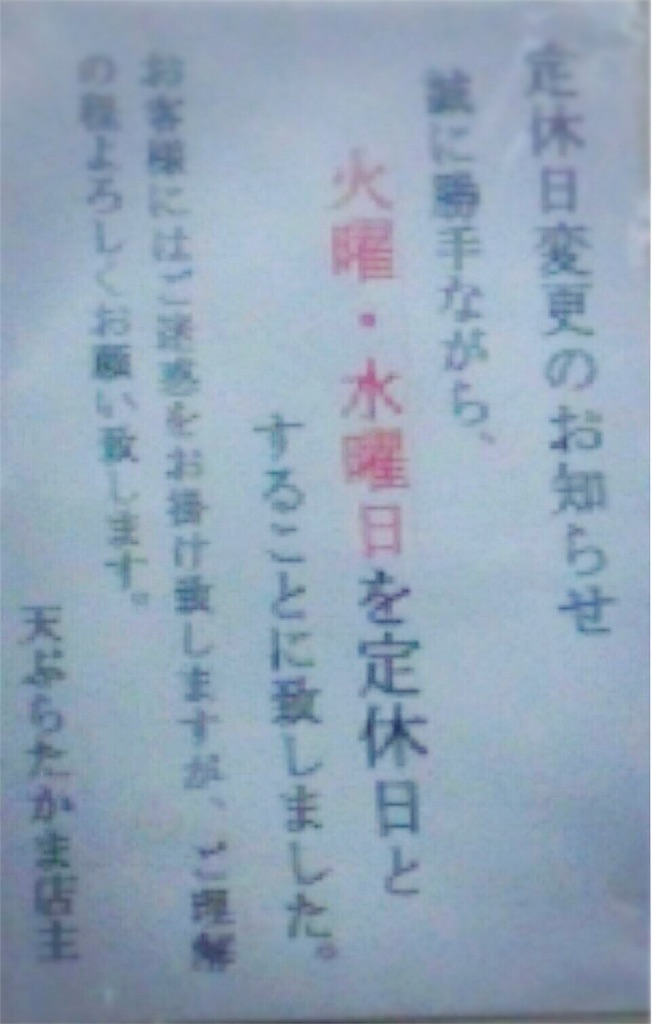 定休日変更のお知らせ
誠に勝手ながら、
火曜・水曜日を定休日と
することに致しました。
お客様にはご迷惑をお掛け致しますが、ご理解
の程よろしくお願い致します。
天ぷらたかま店主